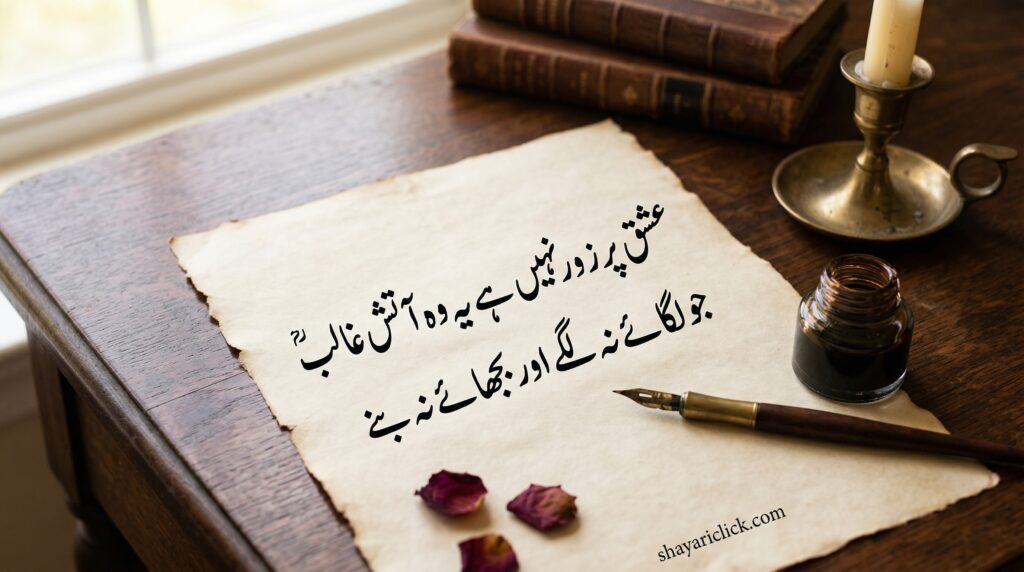 عشق پر زور نہیں ہے یہ وہ آتش غالبؔ
جو لگائے نہ لگے اور بجھائے نہ بنے
shayariclick.com